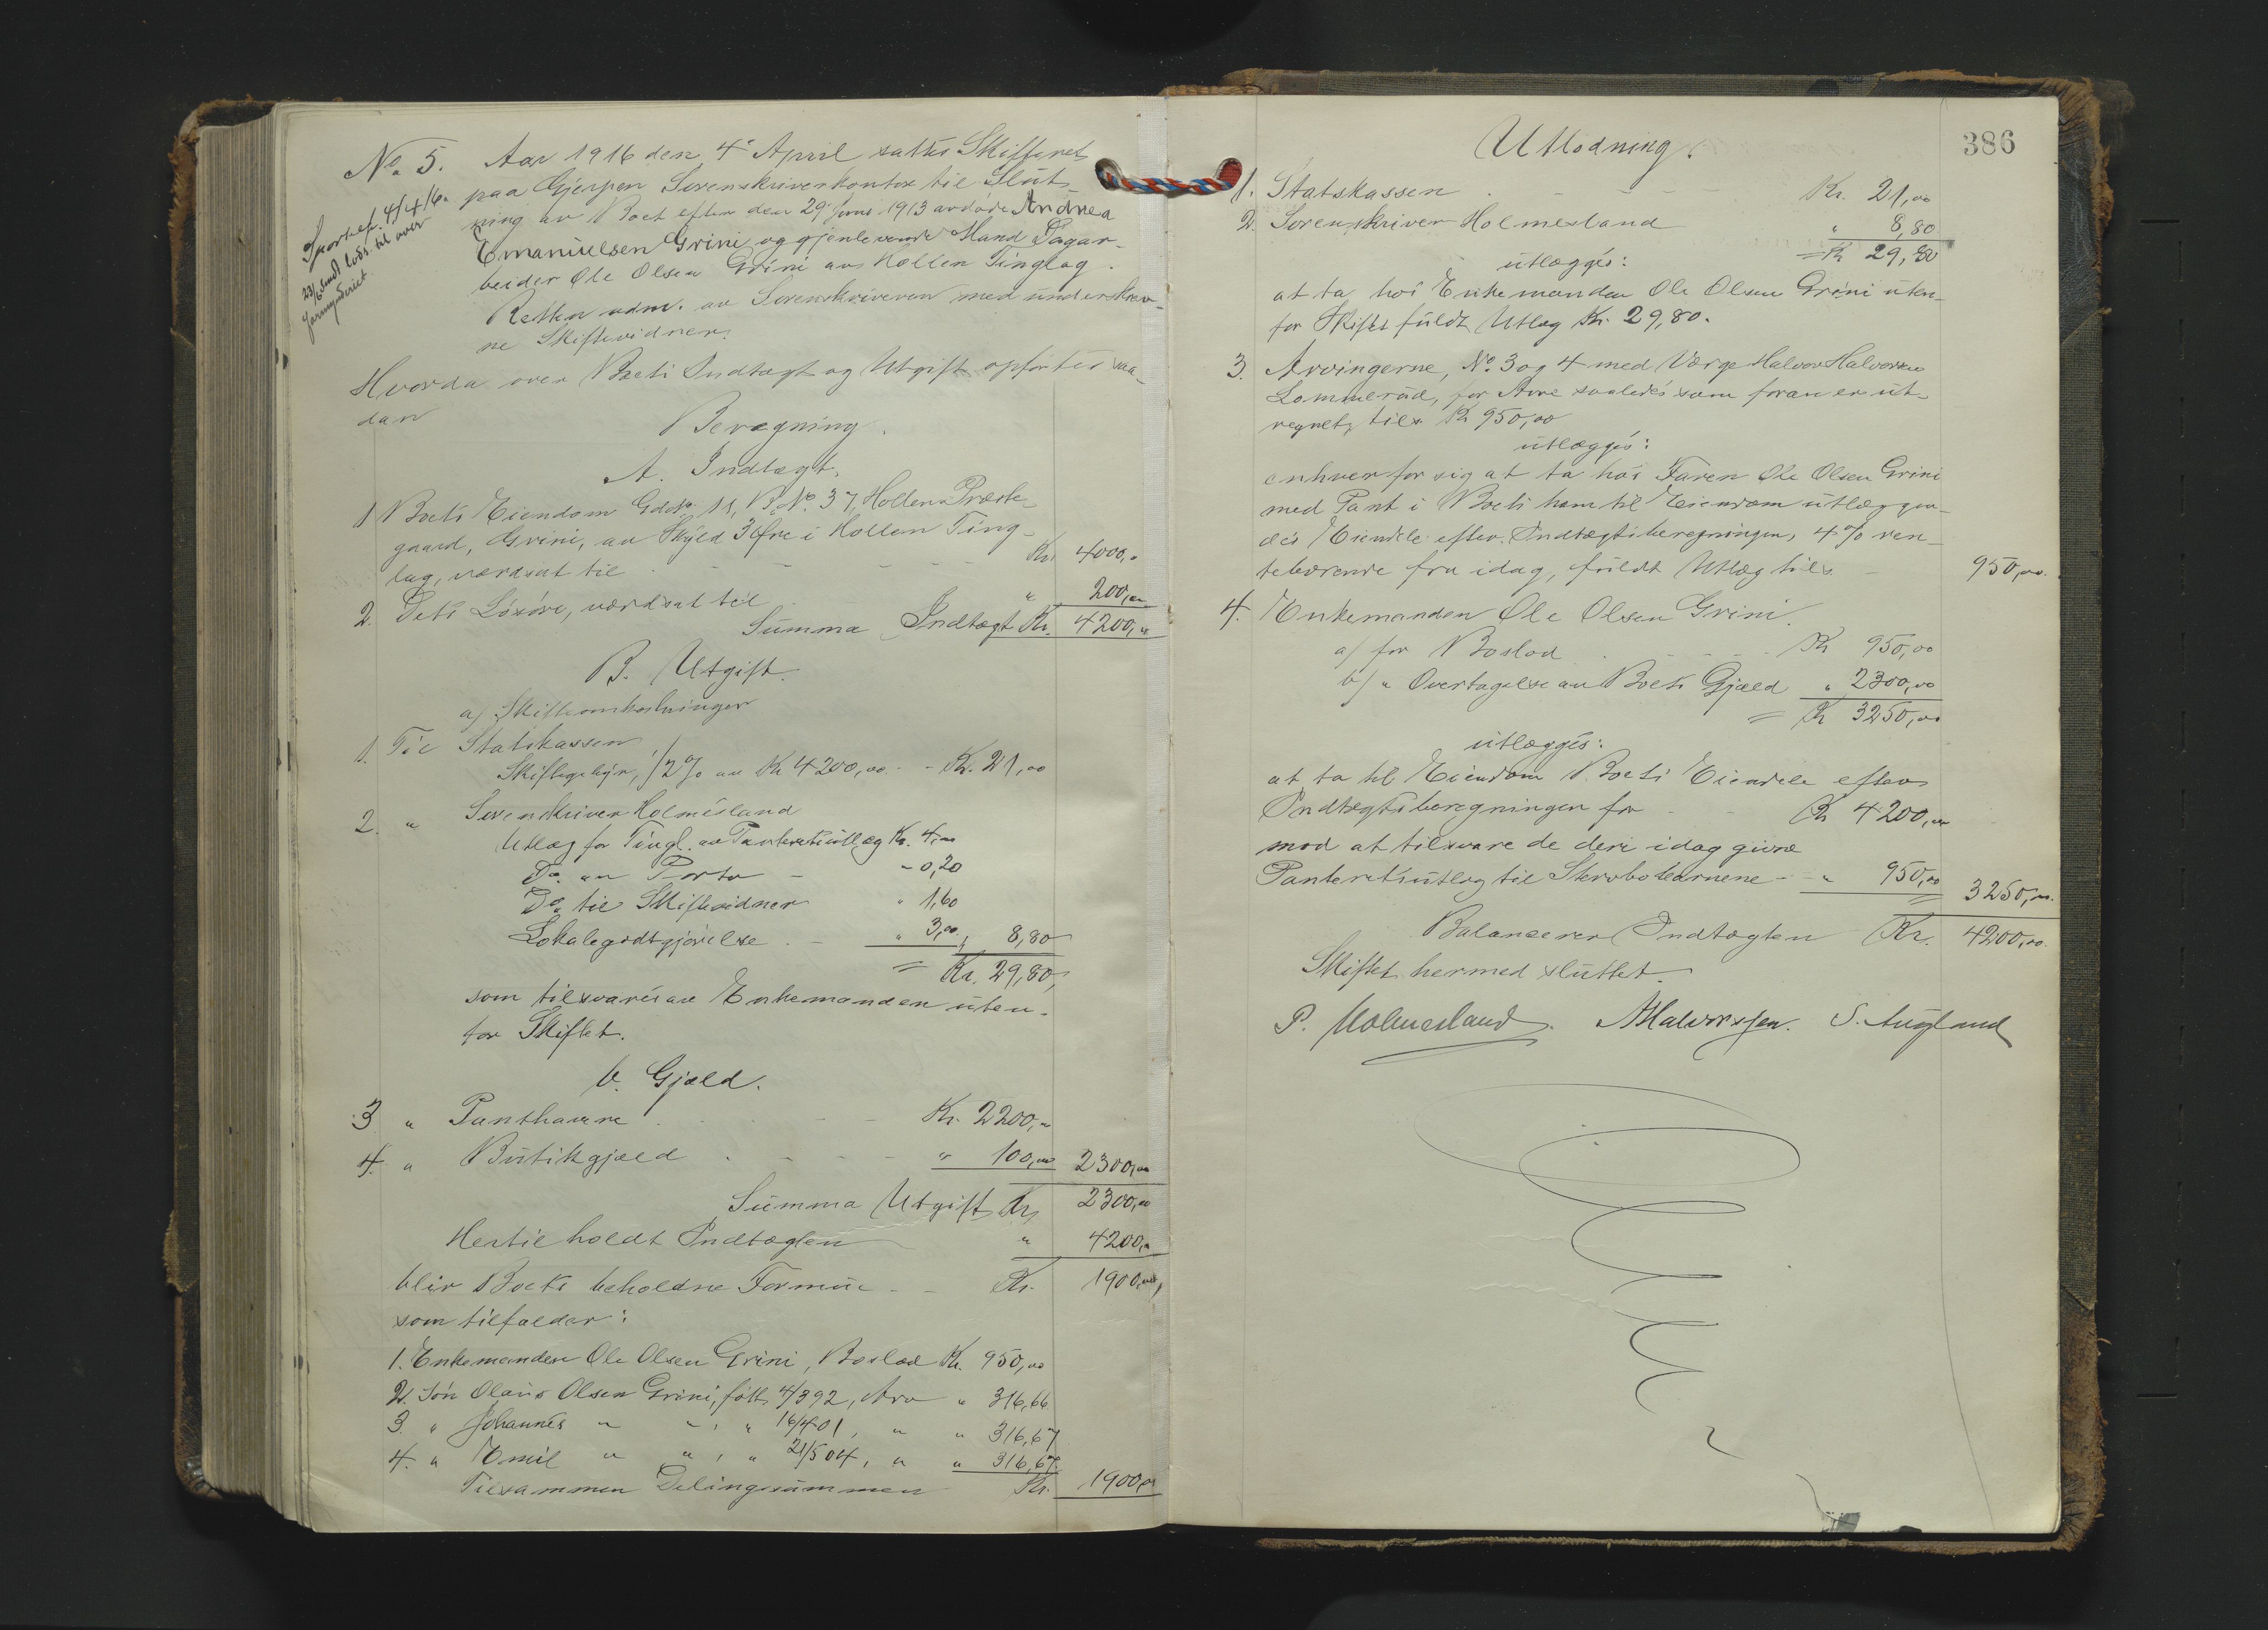 No. 5. Aar 1916 den 4de April sattes Skifteret
paa Gjerpen Sorenskriverkontor til Slut-
ning av Boet efter den 29 Juni 1913 avdøde Andrea
Emanuelsen Grini og gjenlevende Mand Dagar-
beider Ole Olsen Grini av Hollen Tinglag.
Retten adm. av Sorenskriveren med underskrev-
ne Skiftevidner.
Sportelf. 4/4 16.
23/6 Sendt lods. til over
formynderiet
Hvorda over Boets Indtægt og Utgift opførtes saa-
dan
Beregning.
A. Indtægt.
1 Boets Eiendom Gdno. 11, B. No. 37, Hollen Præste-
gaard, Grini, av Skyld 3 Øre i Hollen Ting-
lag, værdsat til - - - - Kr. 4000,00
2. Dets Løsøre, værdsat til " 200,00
Summa Indtægt Kr. 4200,00
B. Utgift.
a) Skifteomkostninger
1. Til Statskassen
Skiftegebyr, 1/2 % av Kr 4200,00 - - Kr. 21,00
2. " Sorenskriver Holmesland
Utlæg for Tingl. av Panteretsutlæg Kr. 4,00
Do. av Porto - - 0,20
Do. til Skiftevidner " 1,60
Lokalegodtgjørelse - " 3,00 " 8,80
= Kr. 29,80,
som tilsvares av Enkemanden uten-
for Skiftet.
b. Gjæld.
3 " Panthavere - - - Kr. 2200,00
4. " Butikgjæld - - - " 100,00 2300,00
Summa Utgift Kr. 2300,00
Hertil holdt Indtægten " 4200,00
blir Boets beholdne Formue - - Kr. 1900,00,
som tilfalder:
1. Enkemanden Ole Olsen Grini, Boslod Kr. 950,00
2. Søn Olaus Olsen Grini, født 4/3 92, Arv " 316,66
3. " Johannes " " , " 16/4 01, " " 316,67
4. " Emil " " , " 21/5 04, " " 316,67
Tilsammen Delingssummen Kr. 1900,00
386
Utlodning.
1. Statskassen - - - Kr. 21,00
2. Sorenskriver Holmesland " 8,80
= Kr 29,80
utlægges:
at ta hos Enkemanden Ole Olsen Grini uten-
for Skiftet fuldt Utlæg Kr. 29,80.
3. Arvingerne, No. 3 og 4 med Værge Halvor Halvorsen
Lommerud, for Arve saaledes som foran er ut-
regnet, tils. Kr 950,00
utlægges:
enhver for sig at ta hos Faren Ole Olsen Grini
med Pant i Boets ham til Eiendom utlæggen-
des Eiendele efter Indtægtsberegningen, 4 % ren-
tebærende fra idag, fuldt Utlæg tils. - 950,00.
4. Enkemanden Ole Olsen Grini.
a) for Boslod - - - Kr 950,00
b) " Overtagelse av Boets Gjæld " 2300,00
= Kr 3250,00
utlægges:
at ta til Eiendom Boets Eiendele efter
Indtægtsberegningen for - - Kr 4200,00
mod at tilsvare de deri idag givne
Panteretsutlæg til Stervbobørnene - - " 950,00 = 3250,00.
Balancerer Indtægten Kr. 4200,00.
Skiftet hermed sluttet.
P. Holmesland. A Halvorssen. S. Augland